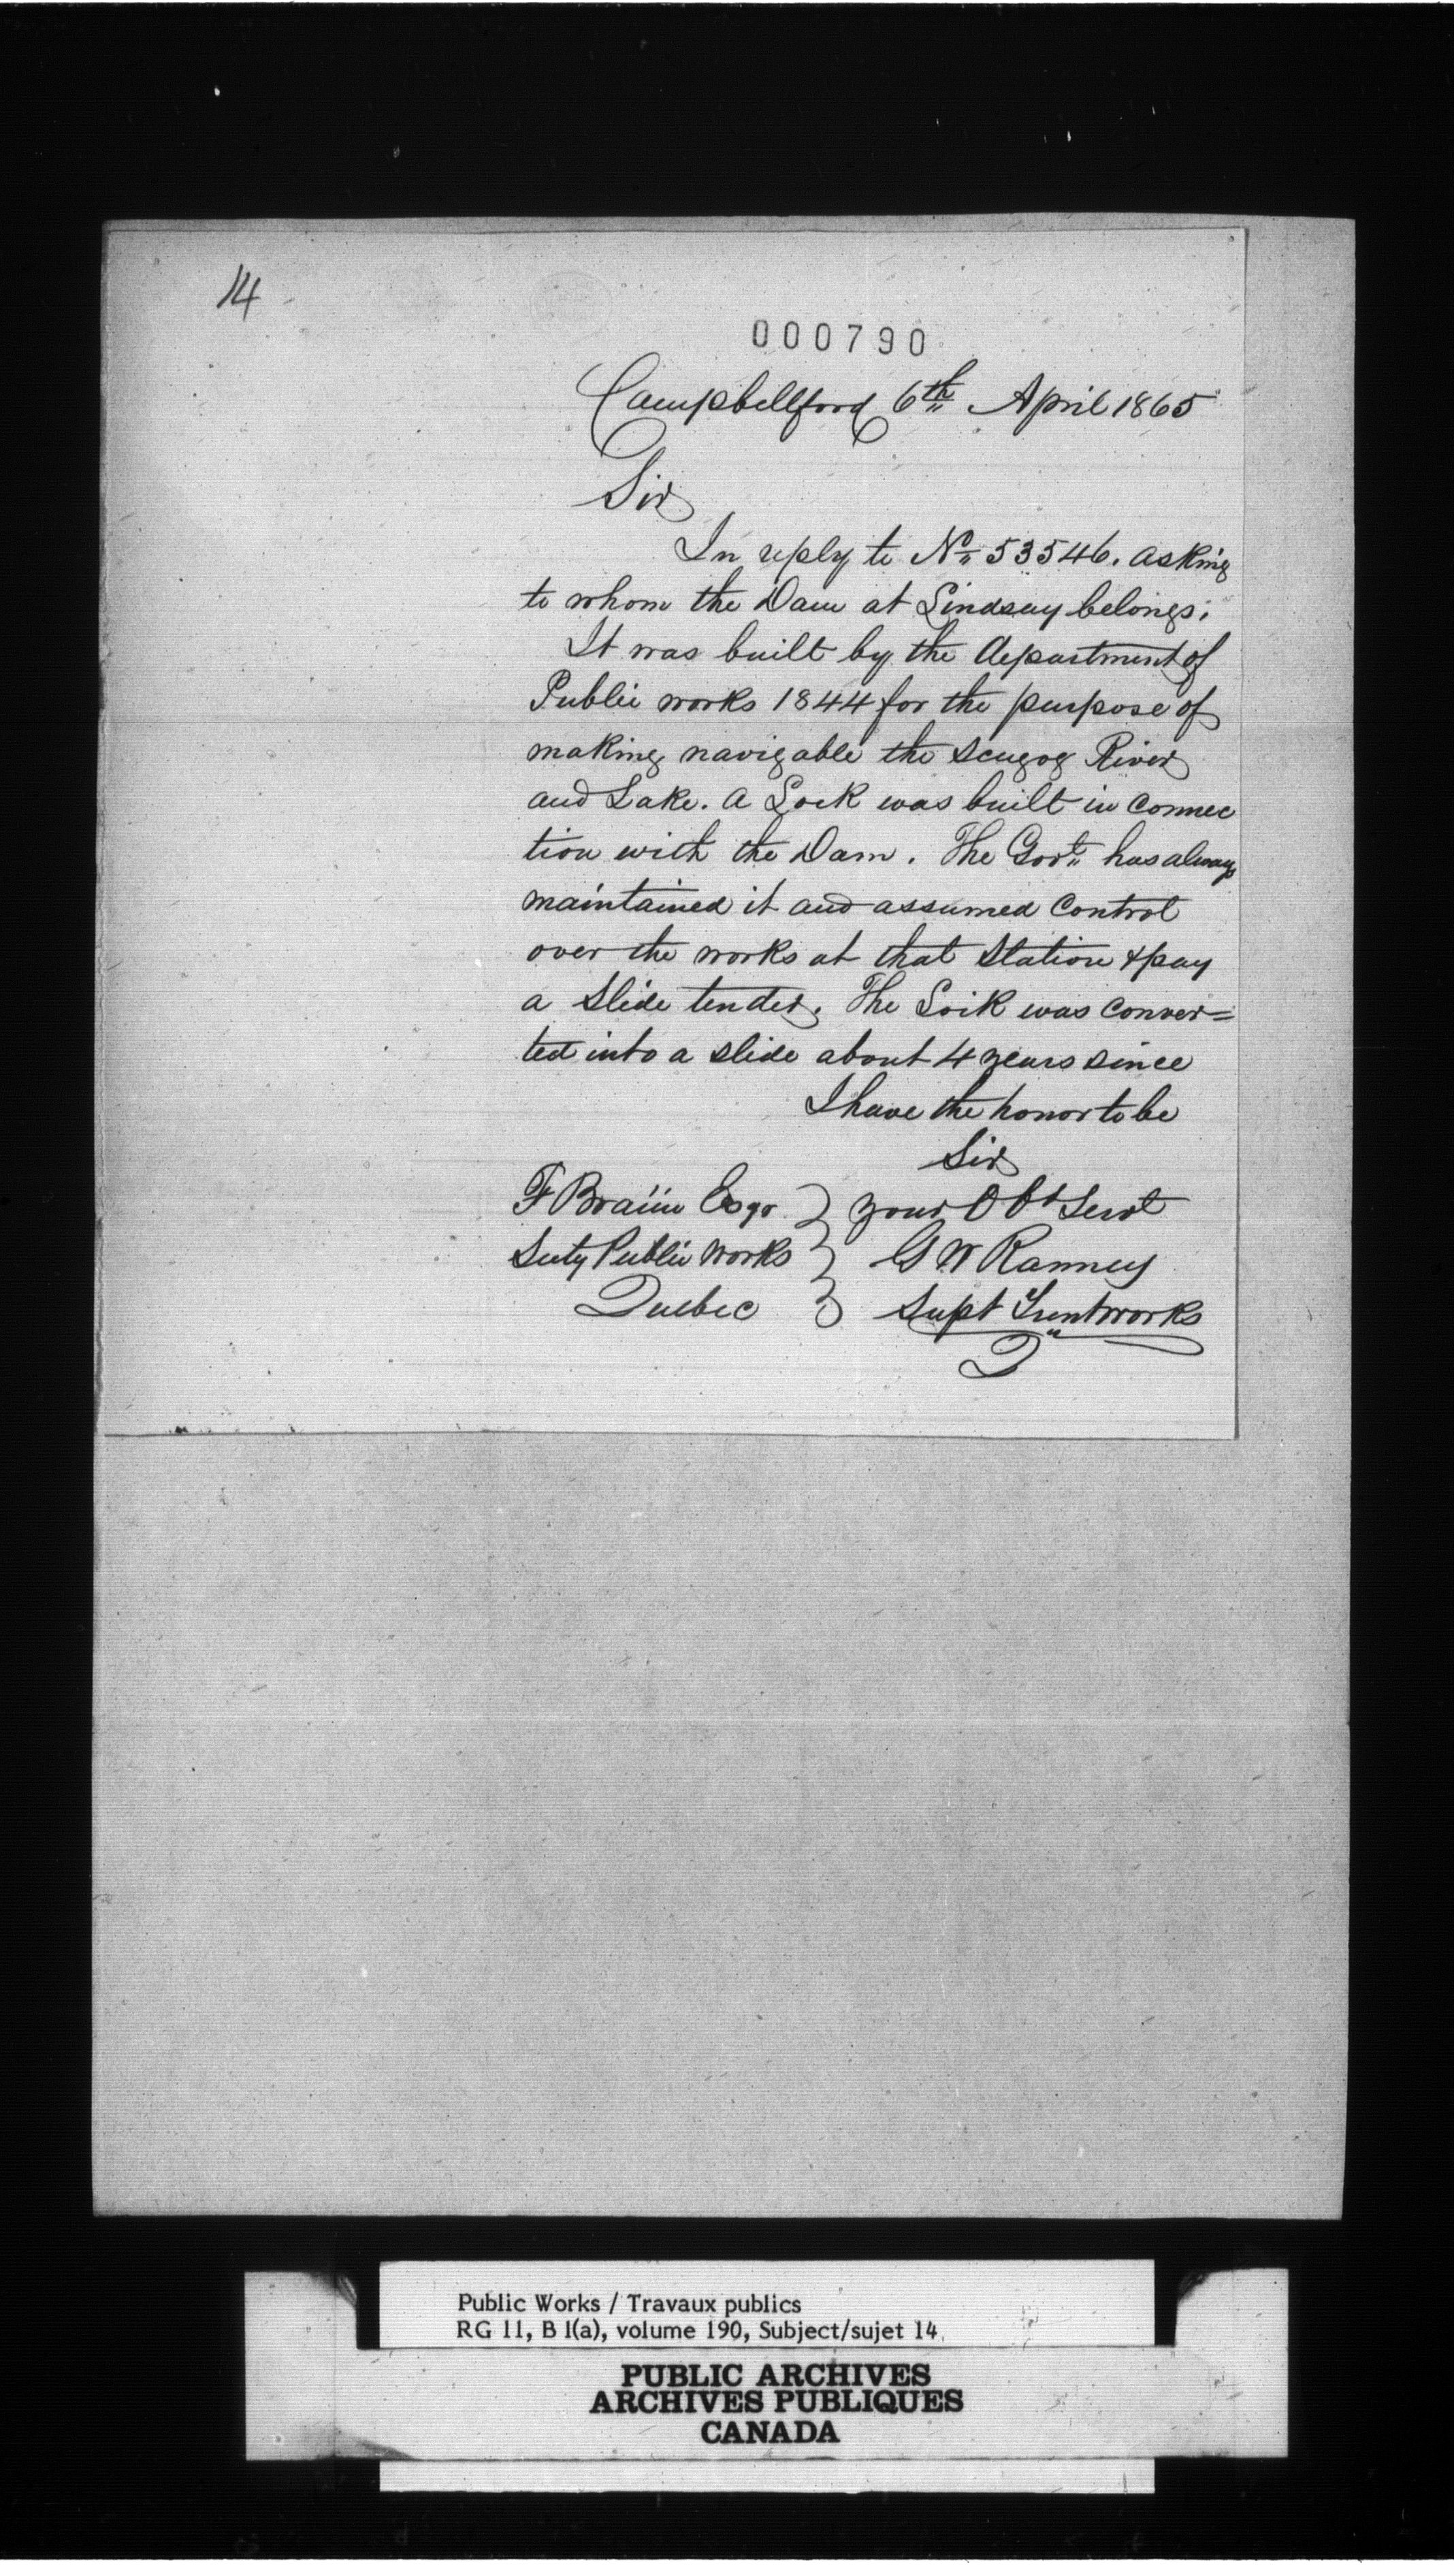 14
000790
Campbellford 6th April 1865
Sir
In reply to No 53546. asking
to whom the Dam at Lindsay belongs;
It was built by the department of
Public works 1844 for the purpose of
making navigable the Scugog River
and Lake. A Lock was built in connec
tion with the Dam. The Govt. has always
maintained it and assumed control
over the works at that Station & pay
a Slide tender. The Lock was conver=
ted into a slide about 4 years since
I have the honor to be
Sir
F Braün Esqr your Obt Servt
Secty Public Works G W Ranney
Quebec Supt Trent works
Public Works / Travaux publics
RG 11, B 1(a), volume 190, Subject/sujet 14
PUBLIC ARCHIVES
ARCHIVES PUBLIQUES
CANADA